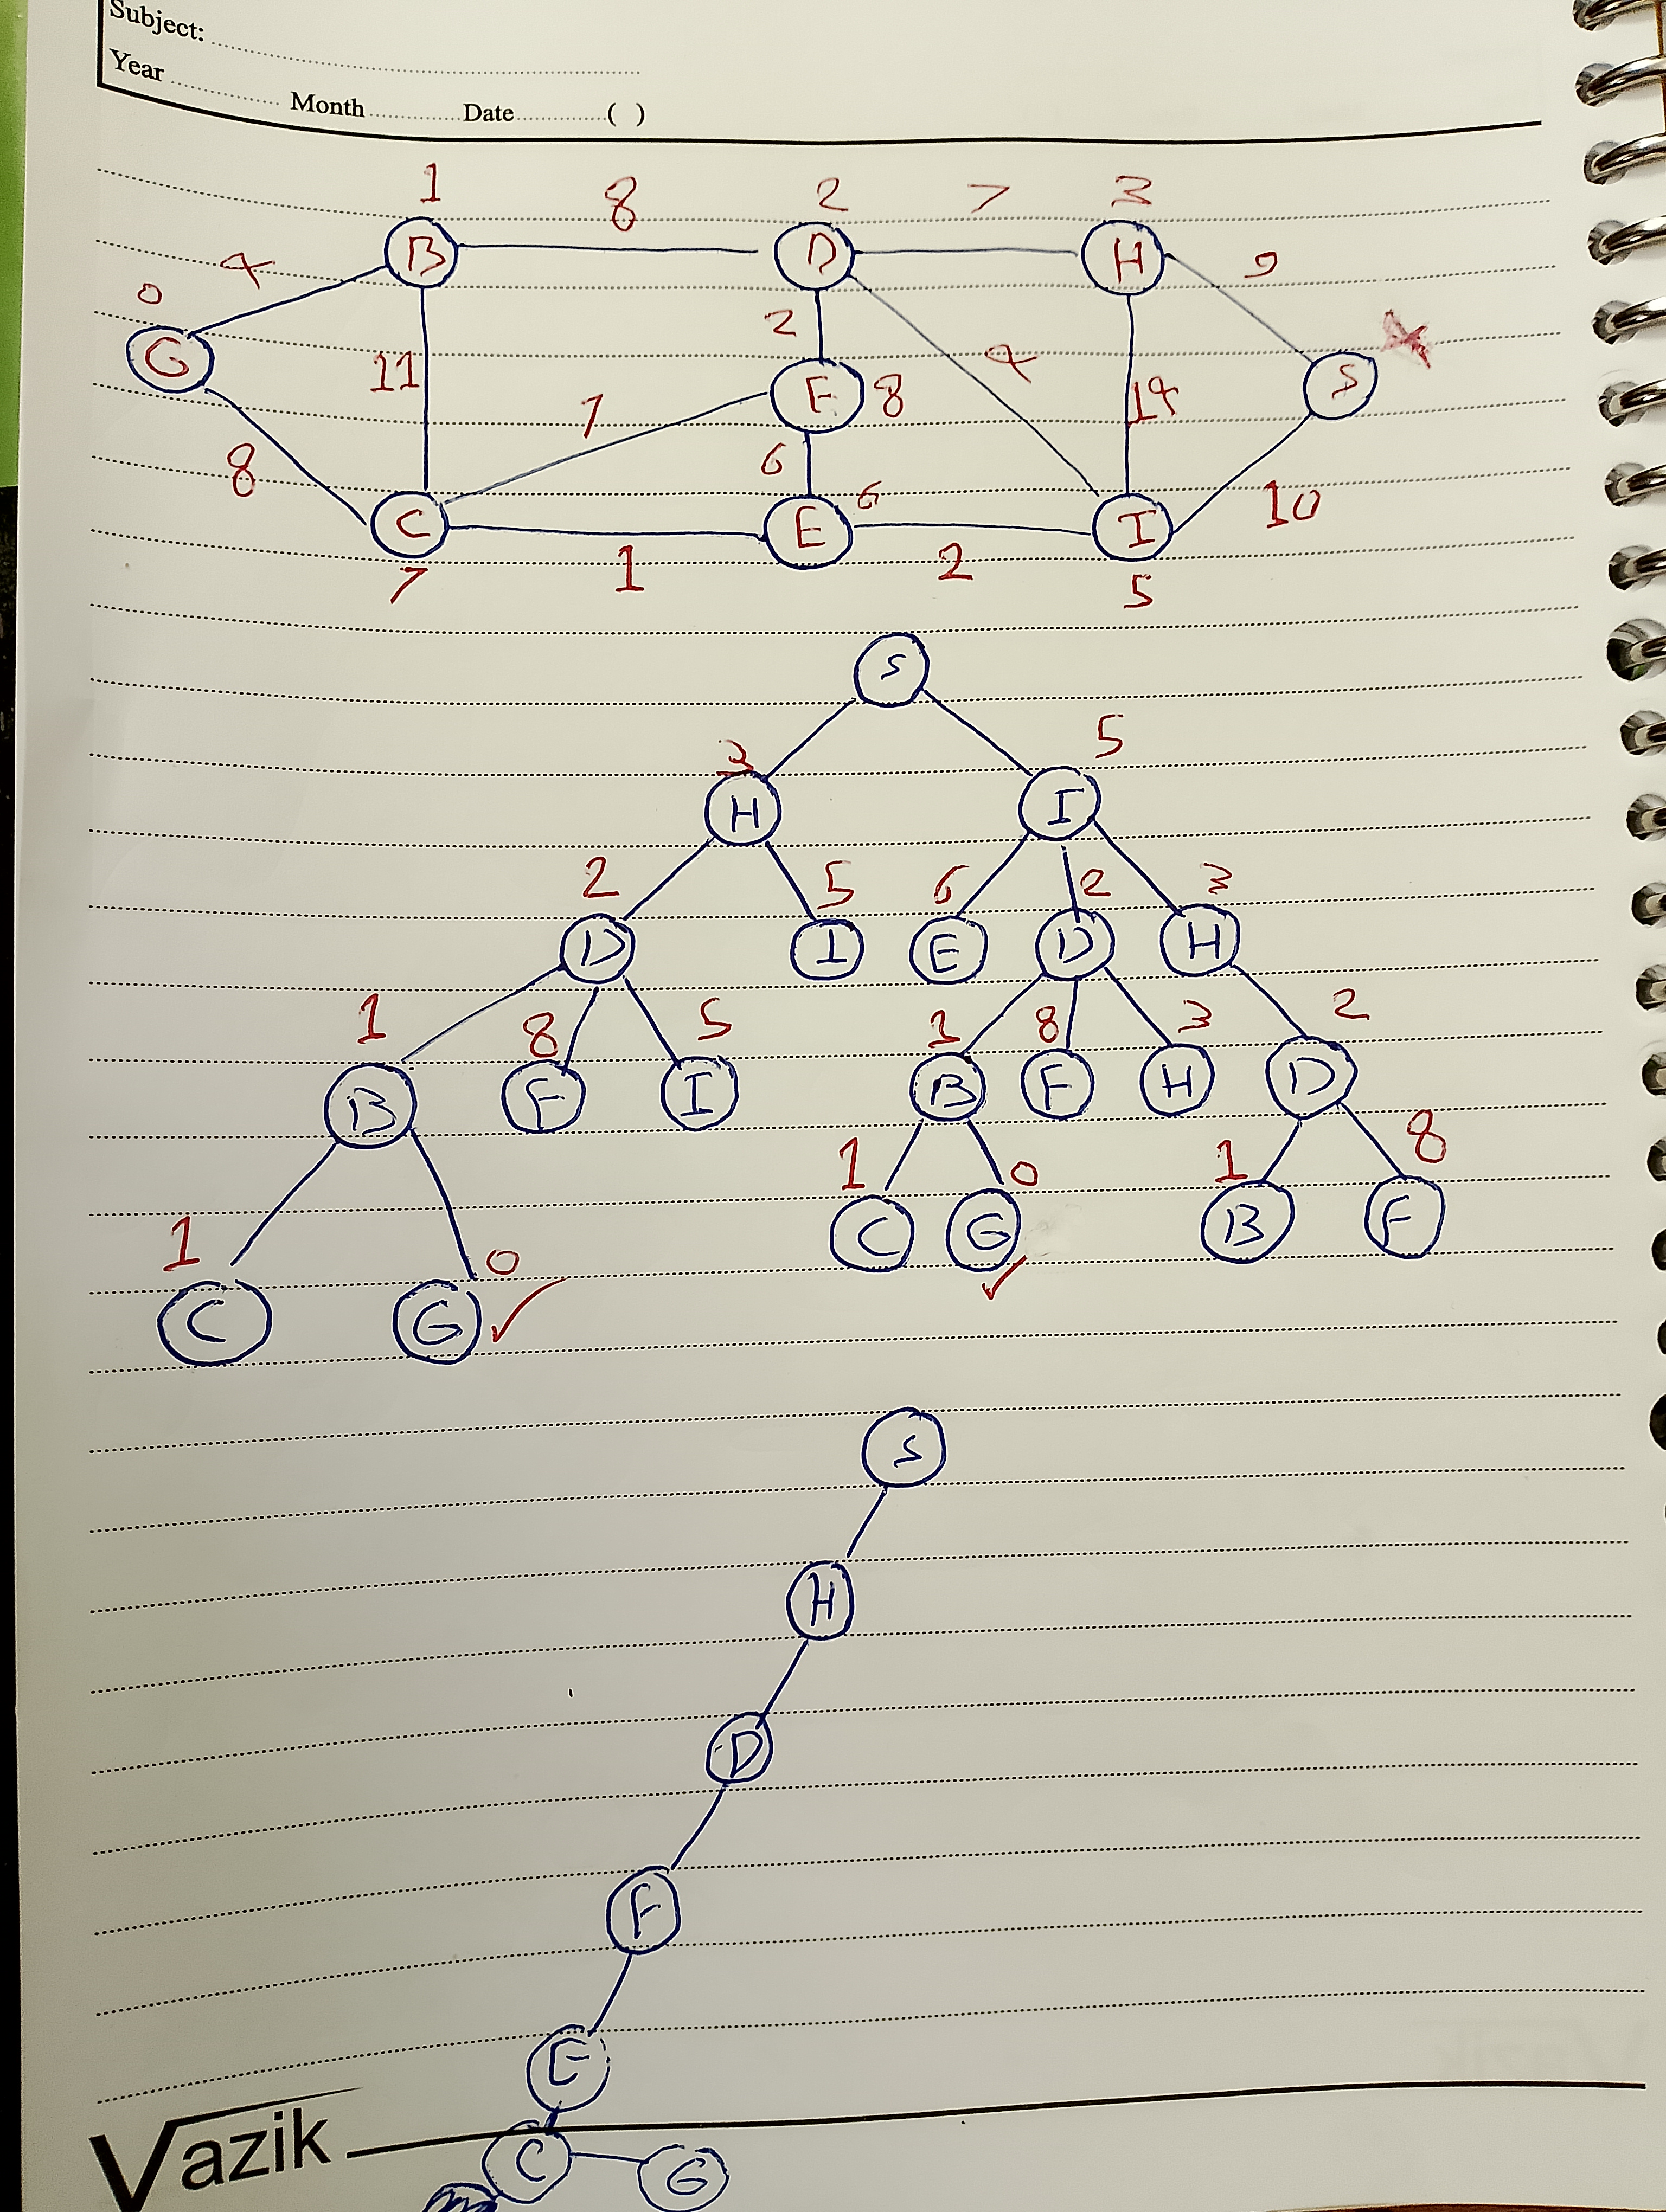 Subject:
Year Month Date ( )
1 8 2 7 3
B D H
4 9
0 2
G 11 F 8 4 14 S
7
8 6
6 10
C E I
7 1 2 5
S
3 5
H I
2 5 6 2 3
D I E D H
1 8 5 1 8 3 2
B F I B F H D
1 0 1 8
C G B F
1 0
C G
S
H
D
F
E
C G
Vazik